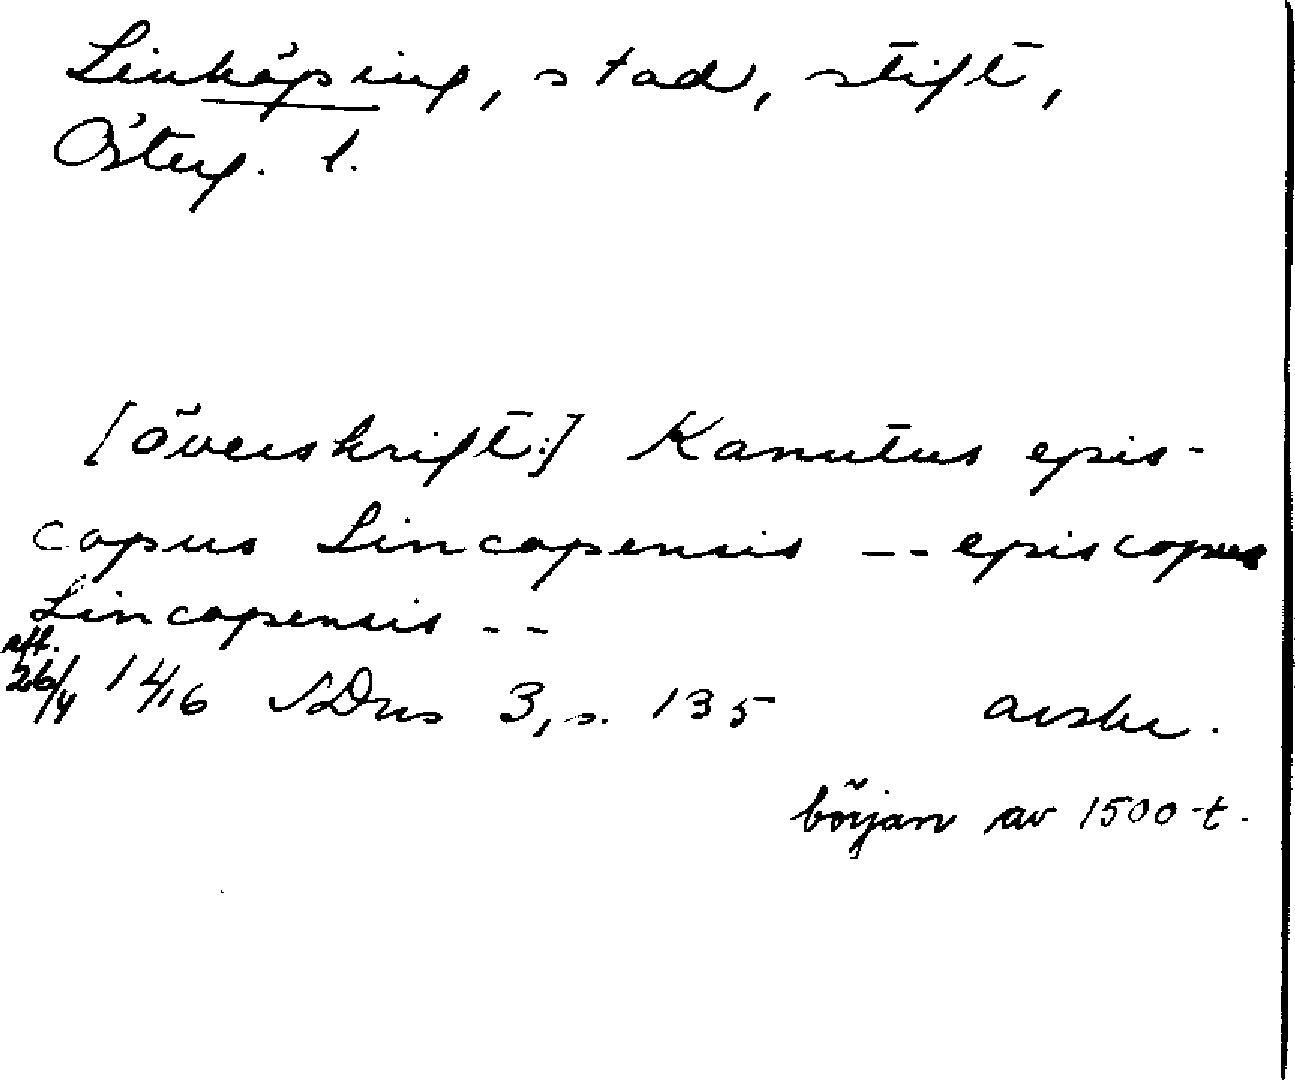 Linköping, stad, stift,
Österg. l.
[överskrift:] Kanutus epis-
copus Lincopensis -- episcopus
Lincopensis --
eft.
26/4 1416 SDns 3, s. 135 avskr.
början av 1500-t.